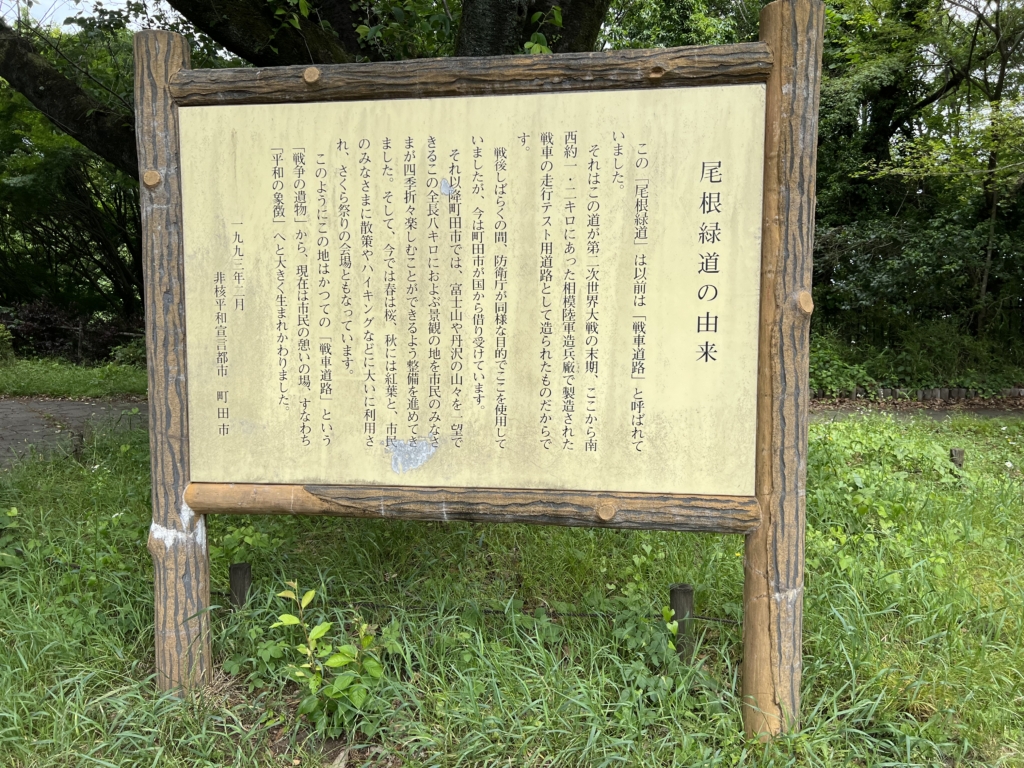 尾根緑道の由来
この「尾根緑道」は以前は「戦車道路」と呼ばれて
いました。
それはこの道が第二次世界大戦の末期、ここから南
西約一・二キロにあった相模陸軍造兵廠で製造された
戦車の走行テスト用道路として造られたものだからで
す。
戦後しばらくの間、防衛庁が同様な目的でここを使用して
いましたが、今は町田市が国から借り受けています。
それ以降町田市では、富士山や丹沢の山々を一望で
きるこの全長八キロにおよぶ景観の地を市民のみなさ
まが四季折々楽しむことができるよう整備を進めてき
ました。そして、今では春は桜、秋には紅葉と、市民
のみなさまに散策やハイキングなどに大いに利用さ
れ、さくら祭りの会場ともなっています。
このようにこの地はかつての「戦車道路」という
「戦争の遺物」から、現在は市民の憩いの場、すなわち
「平和の象徴」へと大きく生まれかわりました。
一九九三年三月
非核平和宣言都市 町田市